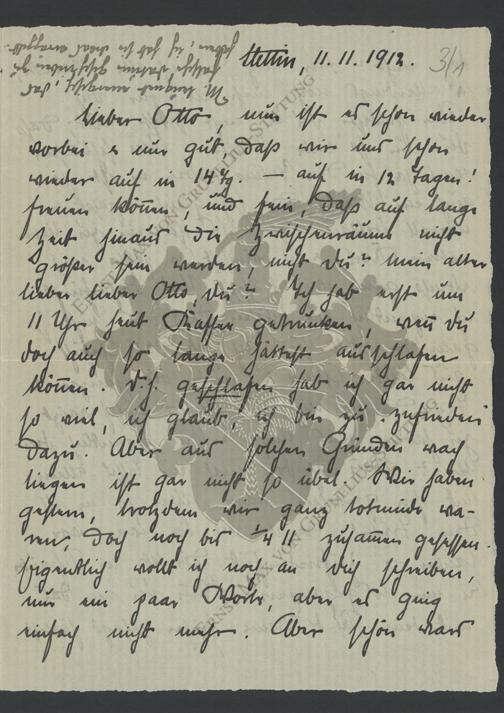 Stettin, 11. 11. 1912.
3/1
Lieber Otto, nun ist es schon wieder
vorbei & nur gut, daß wir uns schon
wieder auf in 14 Tg. — auf in 12 Tagen!
freuen können, und fein, daß auf lange
Zeit hinaus die Zwischenräume nicht
größer sein werden, nicht du? mein alter
lieber lieber Otto, du? Ich hab erst um
11 Uhr heut Kaffee getrunken, weil du
doch auch so lange hättest ausschlafen
können. D.h. geschlafen hab ich gar nicht
so viel, ich glaub, ich bin zu zufrieden
dazu. Aber aus solchen Gründen wach
liegen ist gar nicht so übel. Wir haben
gestern, trotzdem wir ganz totmüde wa-
ren, doch noch bis 1/4 11 zusammen gesessen.
Eigentlich wollt ich noch an dich schreiben,
nur ein paar Worte, aber es ging
einfach nicht mehr. Aber schön wars